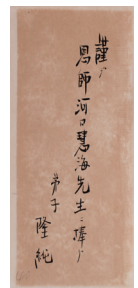 謹ンデ
恩師河口慧海先生ニ捧グ
弟子
隆純